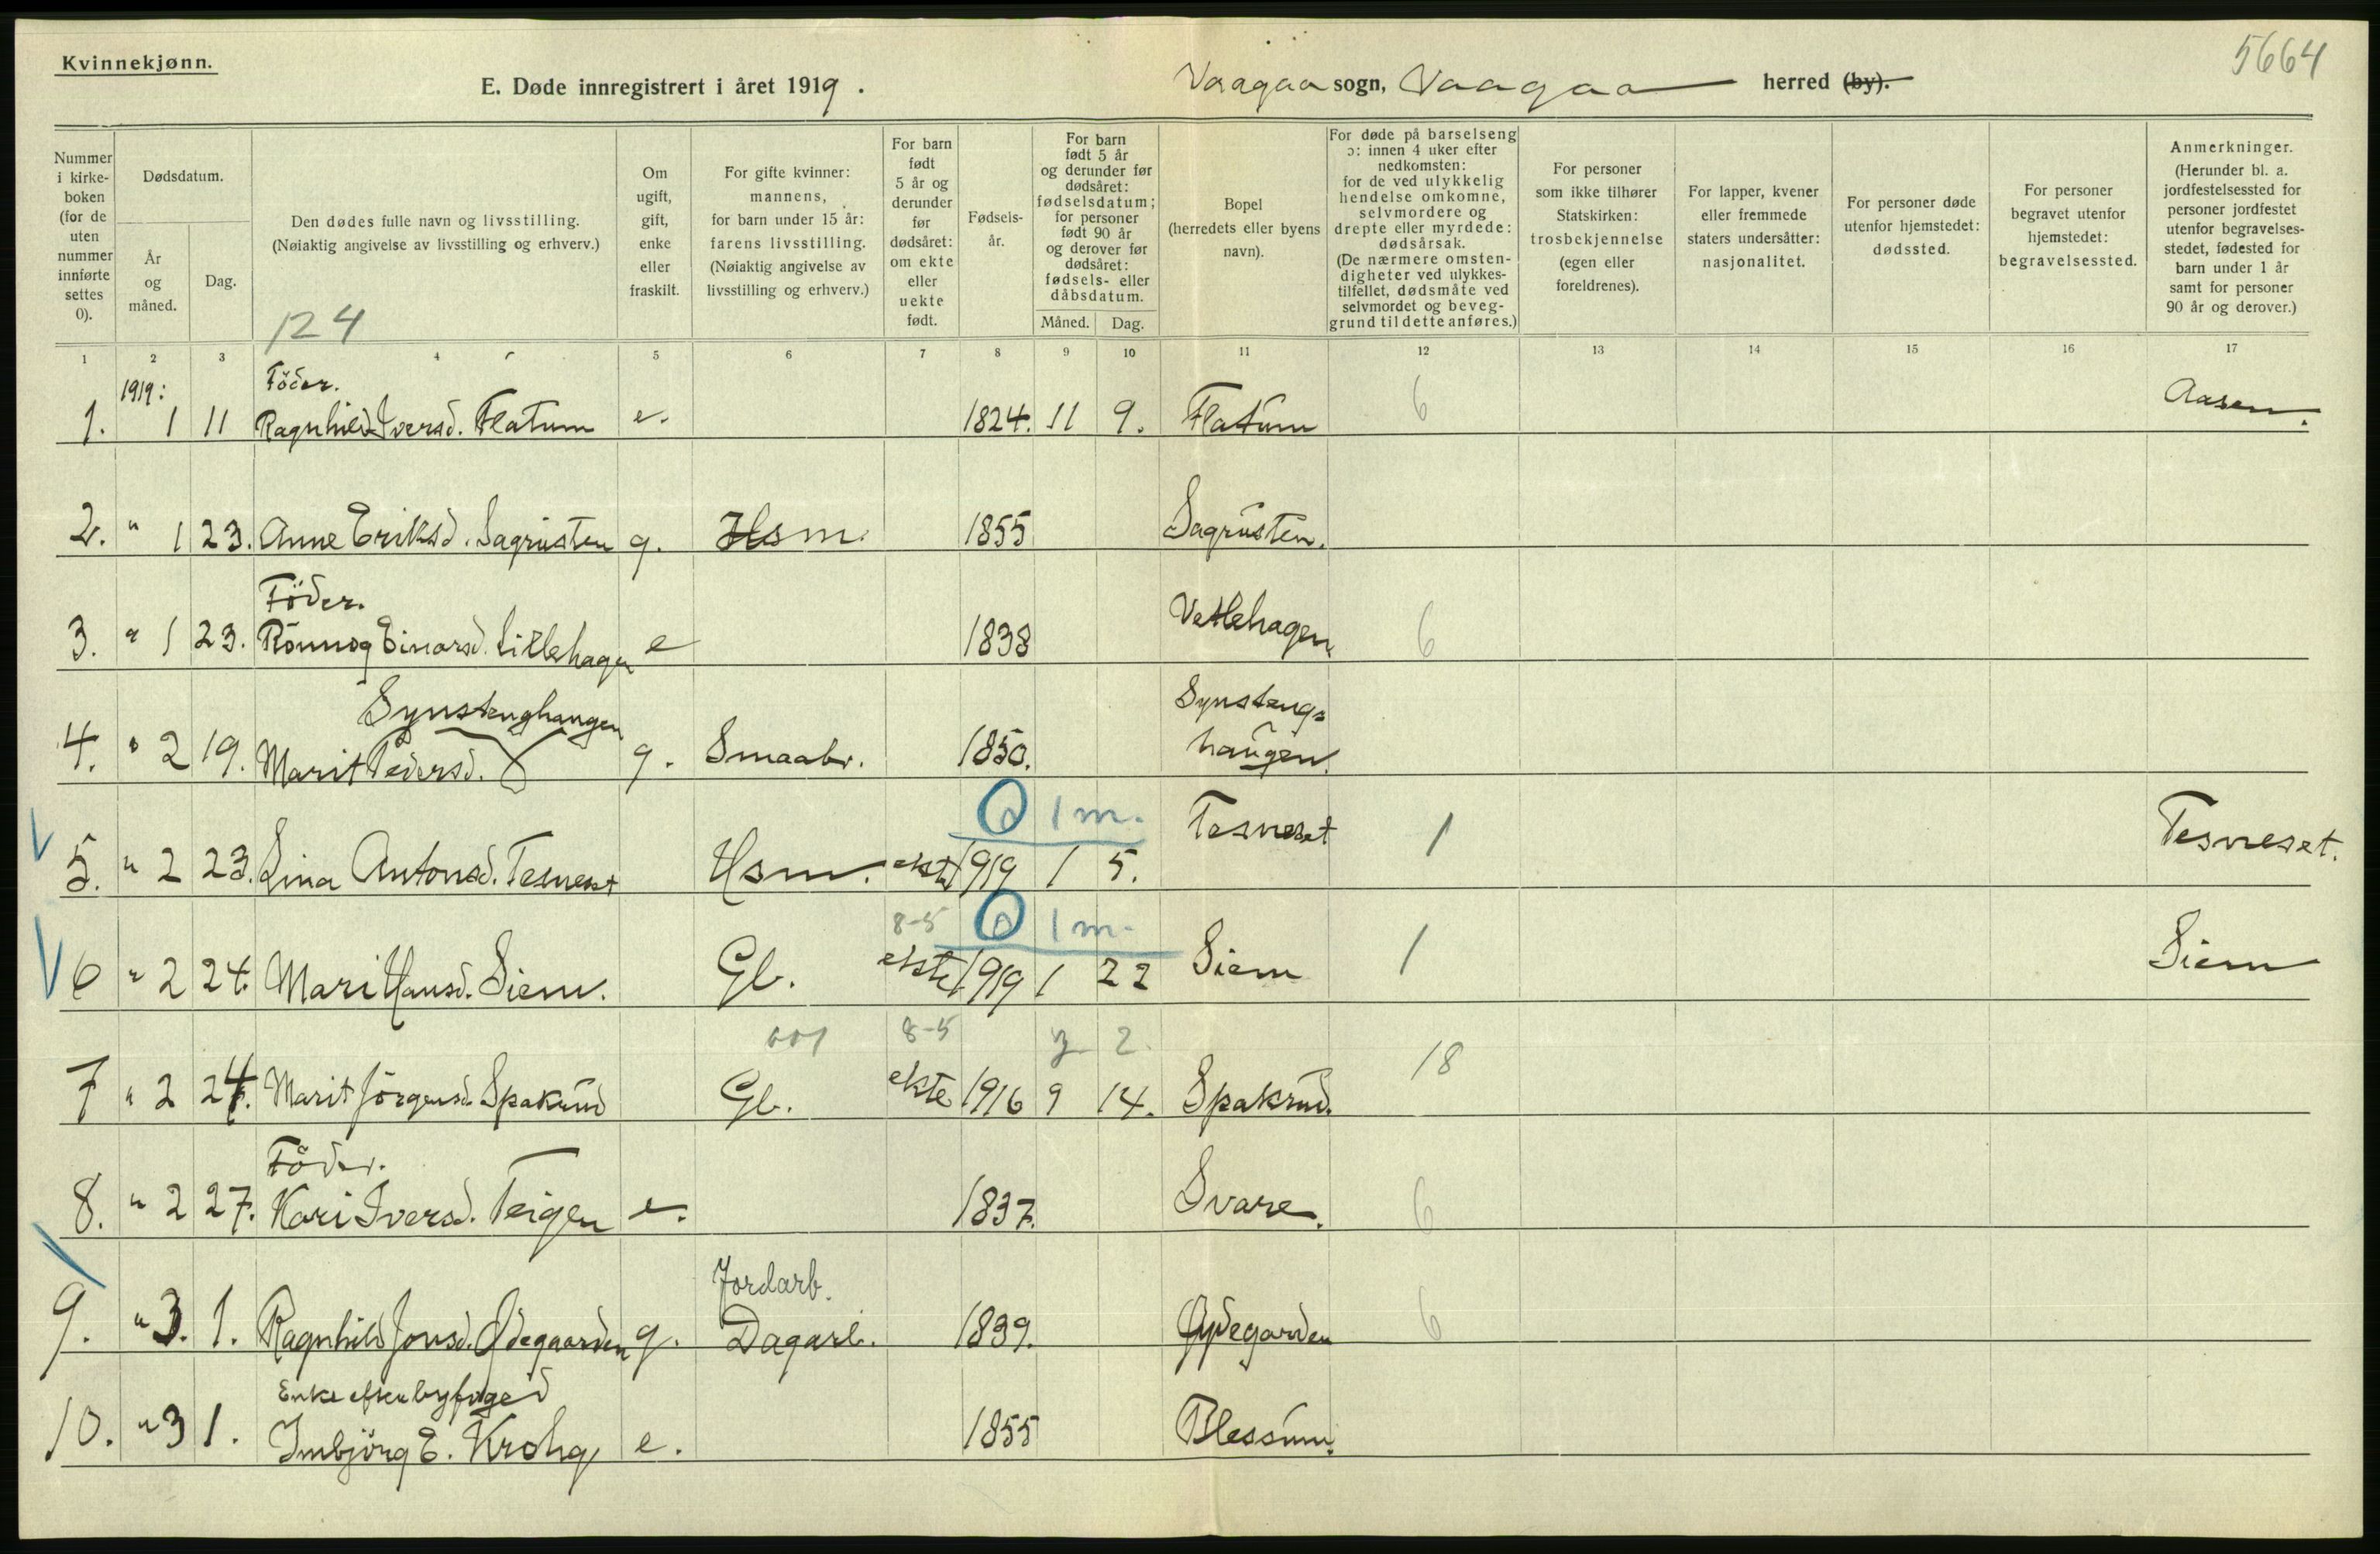 Kvinnekjønn.
5664
E. Døde innregistrert i året 1919. Vaagaa sogn, Vaagaa herred (by).
Nummer i kirke-boken (for de uten nummer innførte settes 0).
Dødsdatum.
År og måned.
Dag.
Den dødes fulle navn og livsstilling.
(Nøiaktig angivelse av livsstilling og erhverv.)
124
Om ugift, gift, enke eller fraskilt.
For gifte kvinner: mannens, for barn under 15 år: farens livsstilling. (Nøiaktig angivelse av livsstilling og erhverv.)
For barn født 5 år og derunder før dødsåret: om ekte eller uekte født.
Fødsels-år.
For barn født 5 år og derunder før dødsåret: fødselsdatum; for personer født 90 år og derover før dødsåret: fødsels- eller dåbsdatum.
Måned. Dag.
Bopel (herredets eller byens navn).
For døde på barselseng ɔ: innen 4 uker efter nedkomsten: for de ved ulykkelig hendelse omkomne, selvmordere og drepte eller myrdede: dødsårsak. (De nærmere omsten-digheter ved ulykkes-tilfellet, dødsmåte ved selvmordet og beveg-grund til dette anføres.)
For personer som ikke tilhører Statskirken: trosbekjennelse (egen eller foreldrenes).
For lapper, kvener eller fremmede staters undersåtter: nasjonalitet.
For personer døde utenfor hjemstedet: dødssted.
For personer begravet utenfor hjemstedet: begravelsessted.
Anmerkninger. (Herunder bl. a. jordfestelsessted for personer jordfestet utenfor begravelses-stedet, fødested for barn under 1 år samt for personer 90 år og derover.)
1 2 3 4 5 6 7 8 9 10 11 12 13 14 15 16 17
1919: Föder.
1. 1 11 Ragnhild Iversd. Flatum e. 1824. 11 9. Flatum 6 Aasen.
2. " 1 23. Anne Eriksd. Sagrusten g. Hsm. 1855 Sagrusten.
Föder.
3. " 1 23. Rönnog Einarsd. Lillehagen e 1838 Vetlehagen 6
Synstenghaugen Synstengs
4. " 2 19. Marit Pedersd. g. Smaabr. 1850. haugen.
0 1 m.
5. " 2 23. Lina Antonsd. Tesneset Hsm. ekte 1919 1 5. Tesneset 1 Tesneset.
8-5 0 1 m.
6 " 2 24. Mari Hansd. Siem. Gb. ekte 1919 1 22 Siem 1 Siem
001 8-5 2 2.
7 " 2 24. Marit Jörgensd. Spakrud Gb. ekte 1916 9 14. Spakrud. 18
Föder.
8. " 2 27. Kari Iversd. Teigen e. 1837. Svare. 6
Jordarb.
9. " 3. 1. Ragnhild Jonsd. Ödegaarden g. Dagarb. 1839. Øydegarden 6
Enke efter byfoged
10. " 3 1. Imbjörg E. Krohg e. 1855 Blessum.